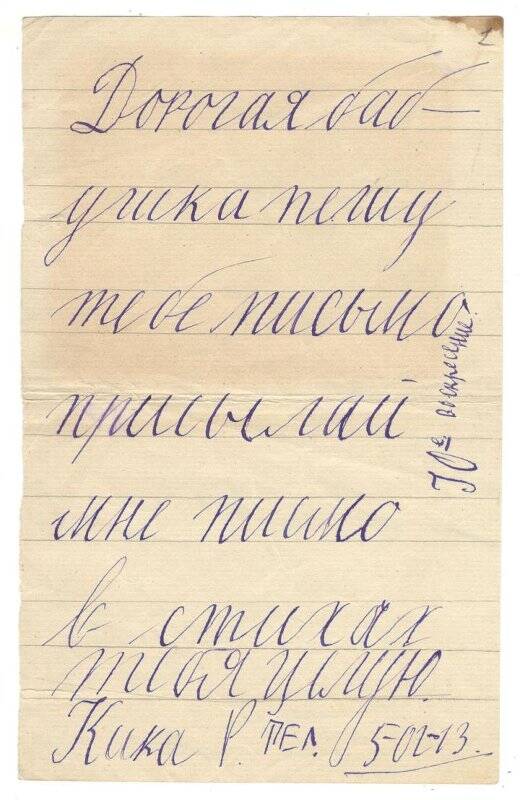 1
Дорогая баб-
ушка пешу
тебе письмо
присылай
мне писмо
в стихах
тибя целую.
Кика Р. ТЕЛ. 5-02-13.
10е воскресение.